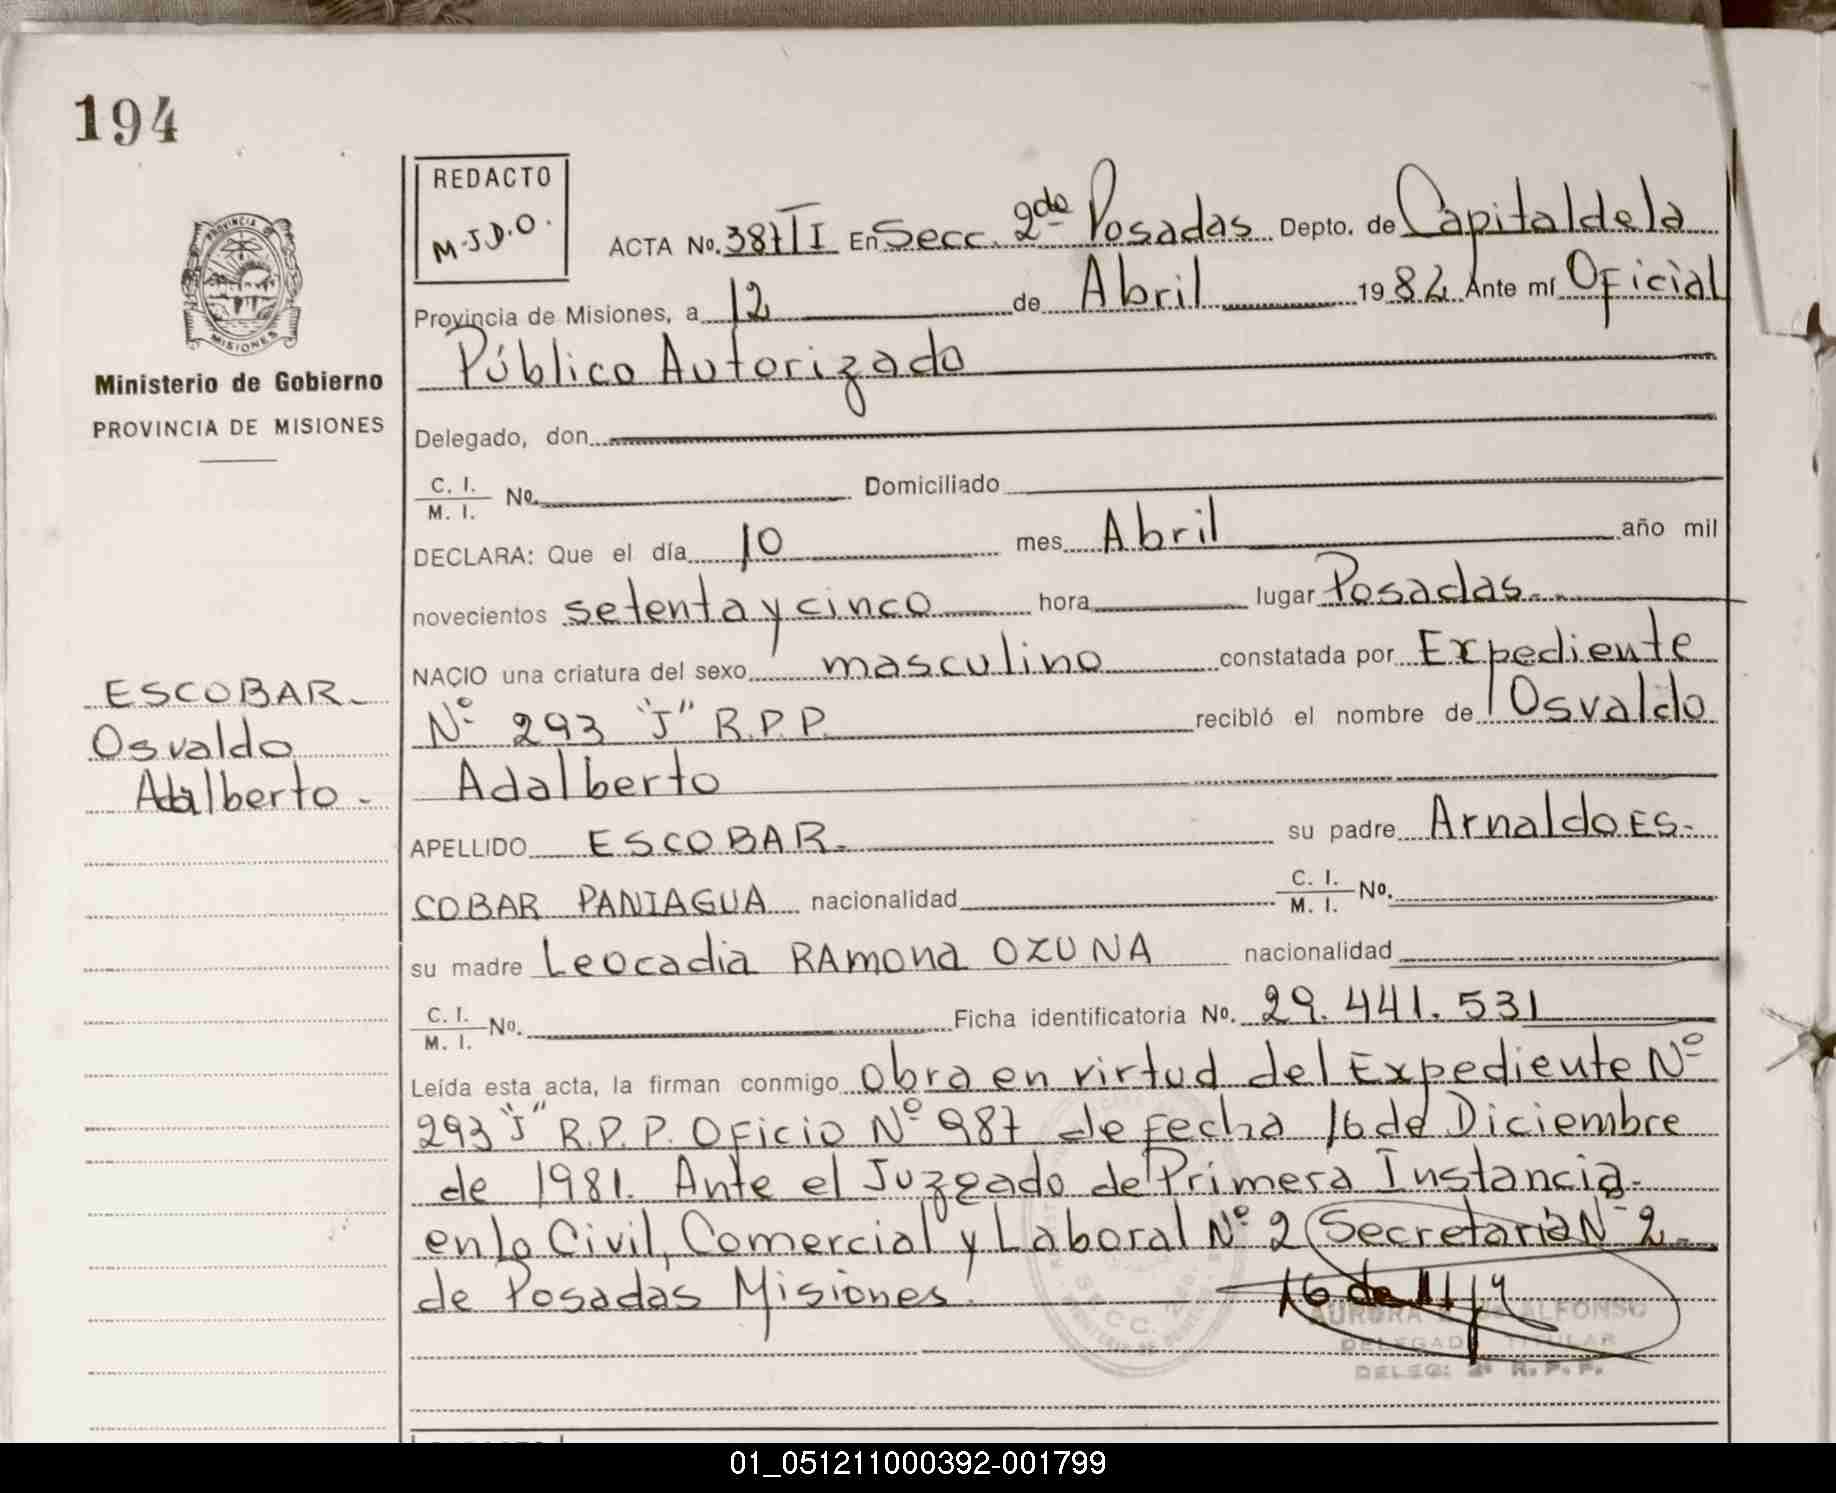 194
REDACTO
M.J.D.O.
PROVINCIA
MISIONES
Ministerio de Gobierno
PROVINCIA DE MISIONES
ACTA No. 387 T I En Secc. 2da Posadas Depto. de Capital de la
Provincia de Misiones, a 12 de Abril 1982 Ante mí Oficial
Público Autorizado
Delegado, don
C. I. / M. I. No. Domiciliado
DECLARA: Que el día 10 mes Abril año mil
novecientos setenta y cinco hora lugar Posadas.
NACIO una criatura del sexo masculino constatada por Expediente
Nº 293 "J" R.P.P. recibió el nombre de Osvaldo
Adalberto
APELLIDO ESCOBAR. su padre Arnaldo ES-
COBAR PANIAGUA nacionalidad C. I. / M. I. No.
su madre Leocadia RAmona OZUNA nacionalidad
C. I. / M. I. No. Ficha identificatoria No. 29.441.531
Leída esta acta, la firman conmigo Obra en virtud del Expediente Nº
293 "J" R.P.P. Oficio Nº 987 de fecha 16 de Diciembre
de 1981. Ante el Juzgado de Primera Instancia-
en lo Civil, Comercial y Laboral Nº 2 Secretaria Nº 2-
de Posadas Misiones.
ESCOBAR-
Osvaldo
Adalberto-
16 de
AURORA ALFONSO
DELEGADO TITULAR
DELEG: 2ª R.P.P.
SECC. 2da.
01_051211000392-001799